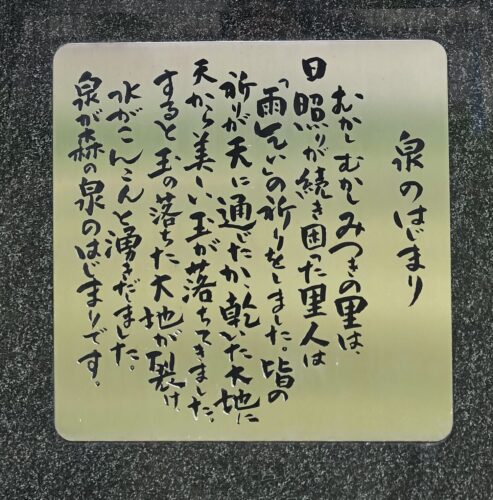 泉のはじまり
むかしむかしみつきの里は、
日照りが続き困った里人は
「雨乞い」の祈りをしました。皆の
祈りが天に通じたか、乾いた大地に
天から美しい玉が落ちてきました。
すると玉の落ちた大地が裂け、
水がこんこんと湧きだしました。
泉が森の泉のはじまりです。